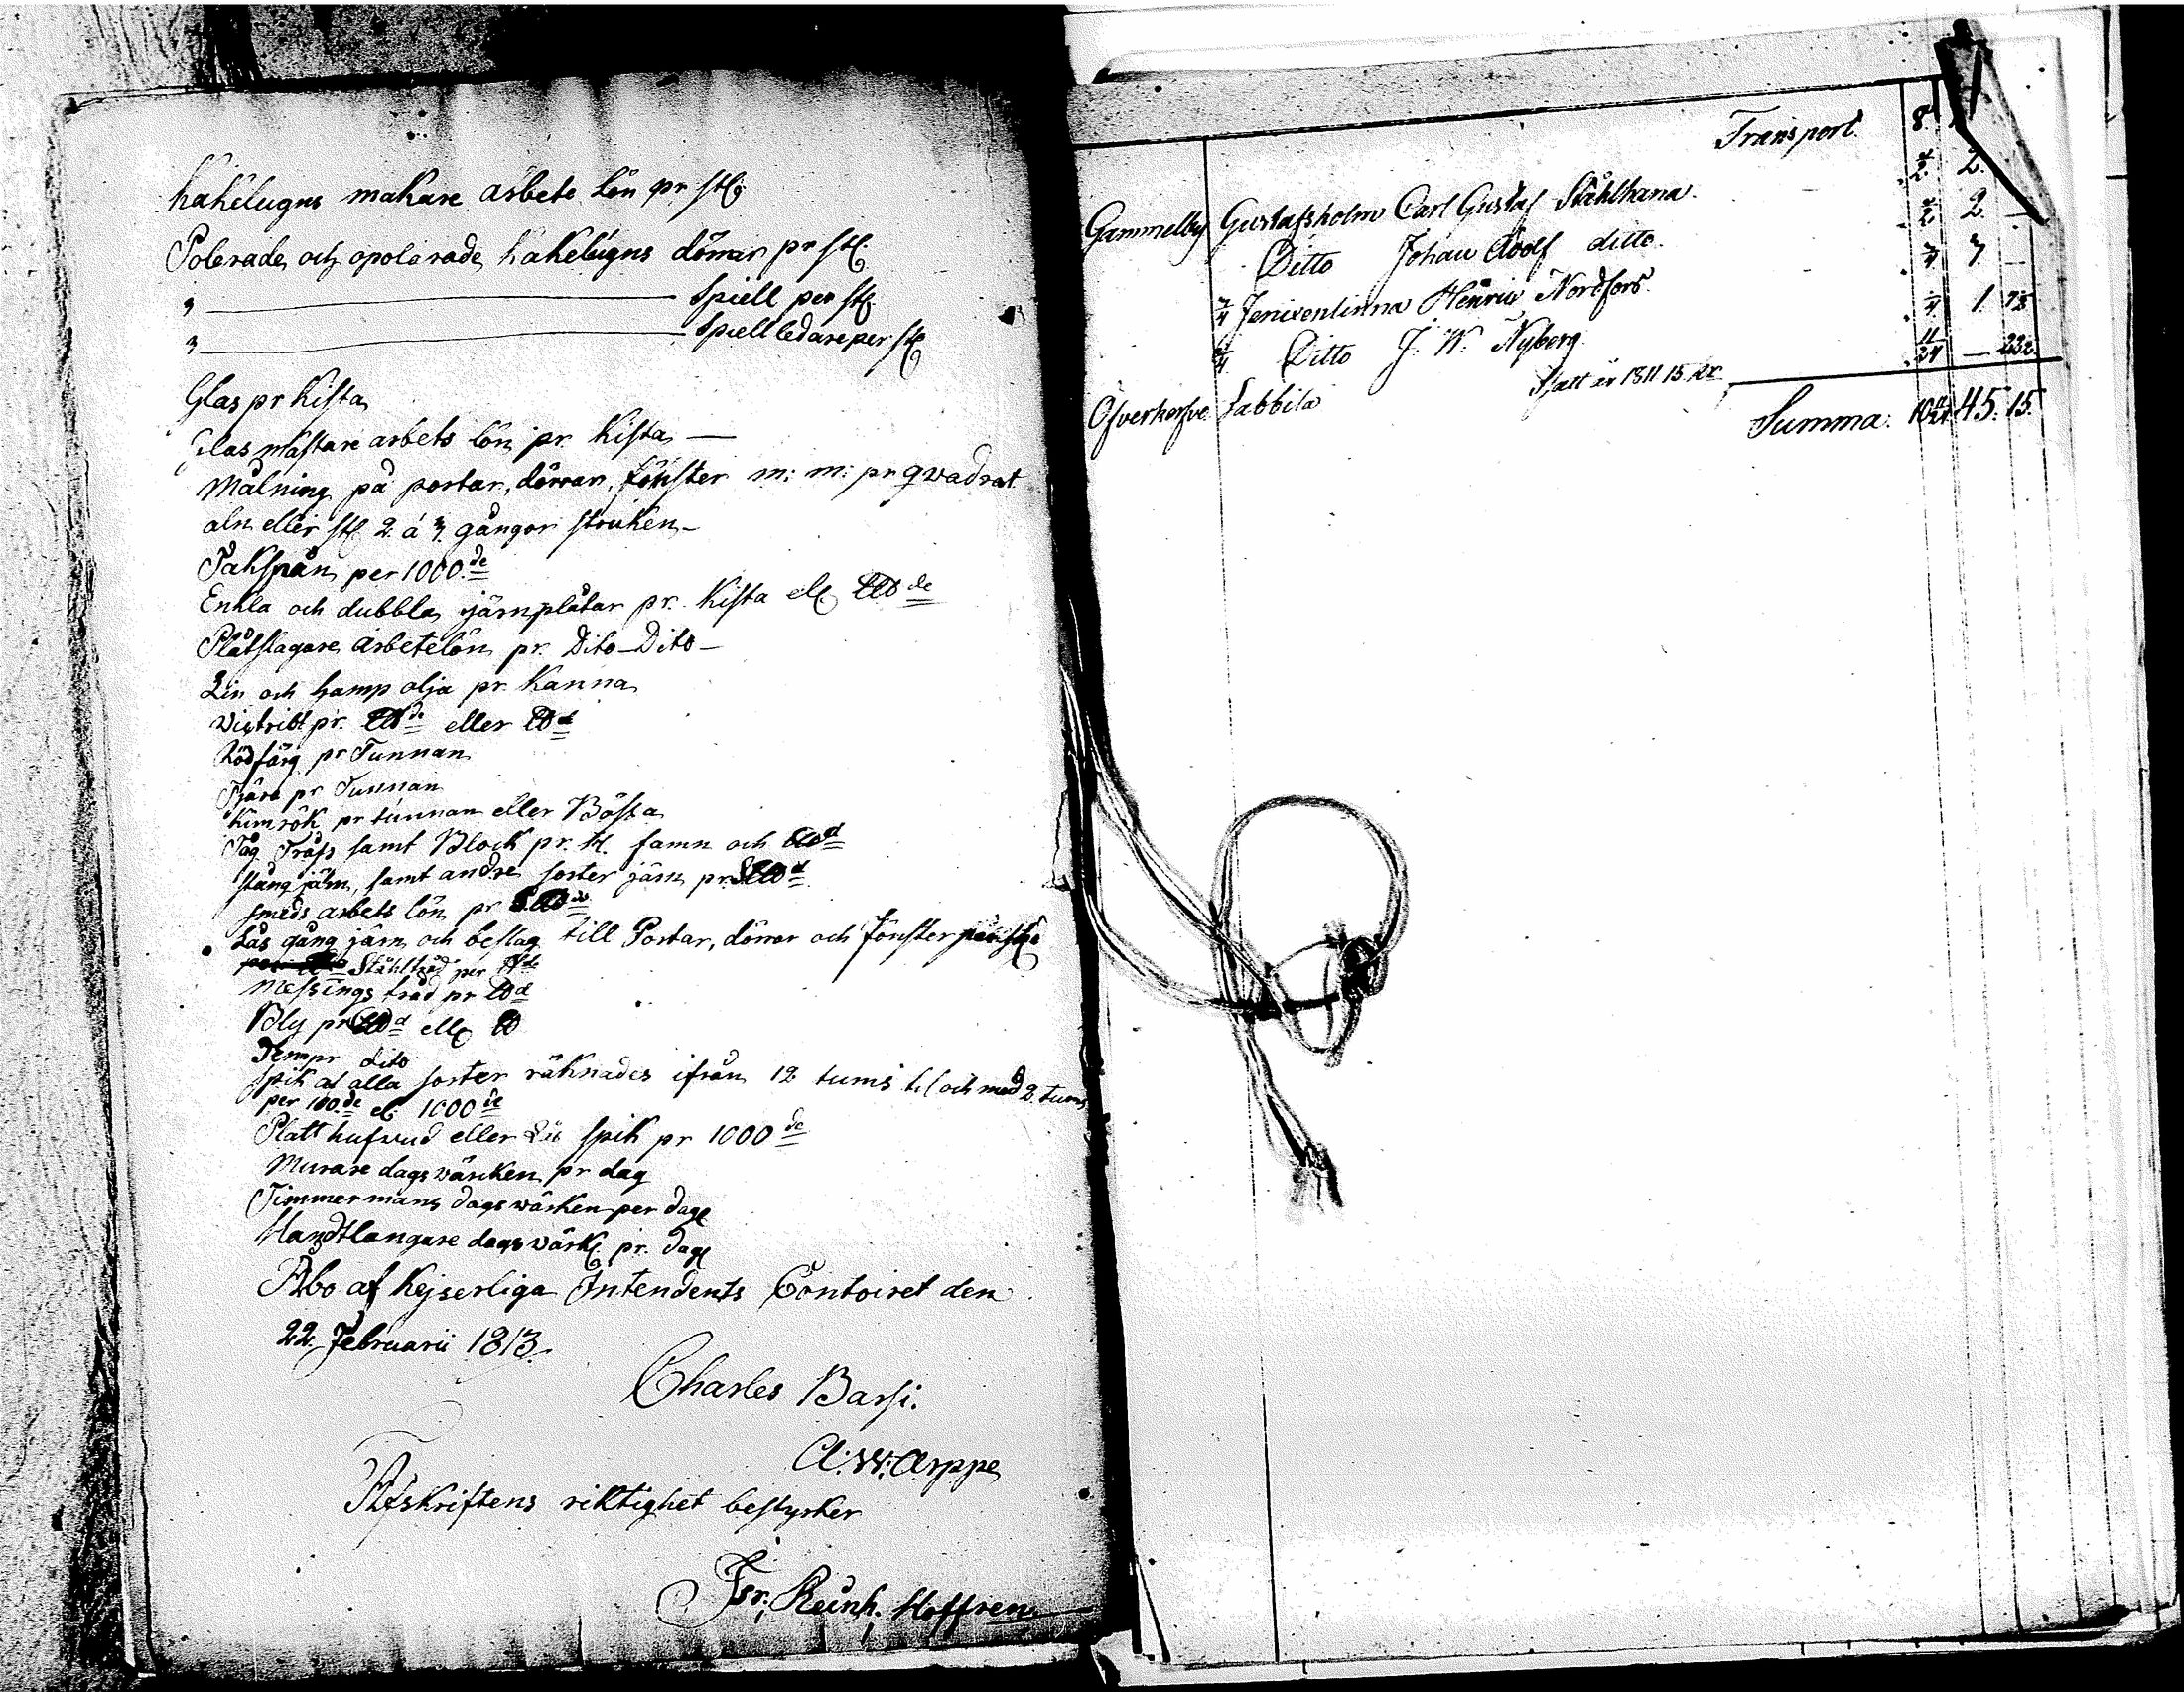 kakelugns makare arbets lön pr st:
Polerade och opolerade kakelugns dörrar pr st:
" ——— Spiell per st:
" ——— Spiell ledare per st:
Glas pr kista
Glas mästare arbets lön pr. kista —
Målning på portar, dörrar, fönster m: m: pr qvadrat
aln eller st: 2 á 3. gånger struken —
Takspån per 1000 de
Enkla och dubbla järnplåtar pr. kista ell: de
Plåtslagare arbetslön pr. Dito Dito —
Lin och hamp olja pr. Kanna
Victril pr. eller
Rödfärg pr Tunnan
Tjära pr Tunnan
Kimrök pr tunnan eller Bösta
Tåg Tråss samt Block pr. st. famn och
stång järn, samt andre sorter järn pr.
smeds arbets lön pr
Lås gång järn och beslag till Portar, dörrar och fönster
Ståhltråd per
Messings tråd pr
Bly pr ell:
Dito
Spik af alla sorter räknades ifrån 12 tums til och med 2 tums
per 100 de el: 1000 de
Platt hufvud eller spik pr 1000 de
Murare dagsvärcken pr dag
Timmermans dagsvärken per dag
Handtlangare dagsvärk: pr. dag
Åbo af Kejserliga Intendents Contoiret den
22. Februarii 1813.
Charles Bassi.
A: W: Arppe
Afskriftens riktighet bestyrker
Isr: Reinh. Hoffren
Transport 8
Gammelby Gustafsholm Carl Gustaf Ståhlhana. 2.
Ditto Johan Adolf ditto. 2. —
Henric Nordfors
Ditto J. W. Nyberg 1.
Ofverkorsve Labbila 11/24 — 232
Summa 10 11/24 45. 15.